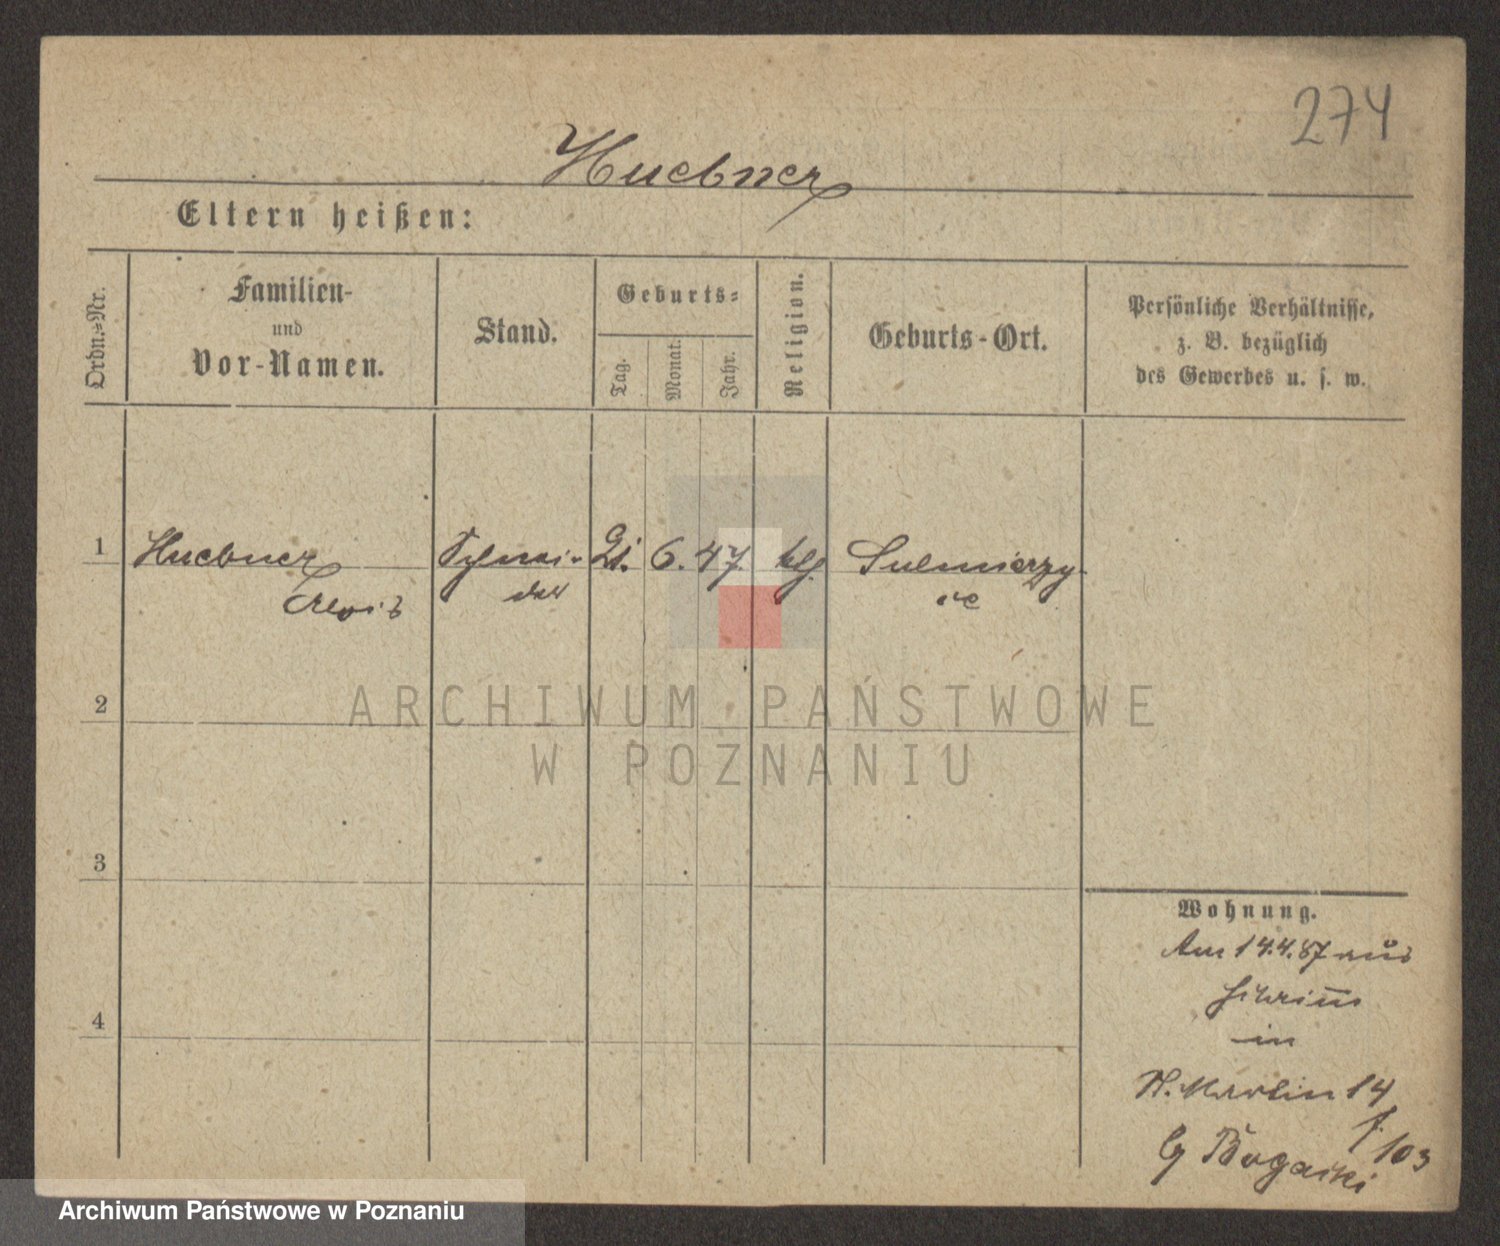 274
Huebner
Eltern heißen:
Ordn.=Nr.
Familien-
und
Vor-Namen.
Stand.
Geburts=
Tag.
Monat.
Jahr.
Religion.
Geburts-Ort.
Persönliche Verhältnisse,
z. B. bezüglich
des Gewerbes u. s. w.
1
Huebner
Alois
Schnei-
der
21. 6. 47.
Sulmierzy-
ce
ARCHIWUM PAŃSTWOWE
W POZNANIU
2
3
4
Wohnung.
Am 14.4.87 aus
Schrimm
in
St. Martin 14
103
Archiwum Państwowe w Poznaniu